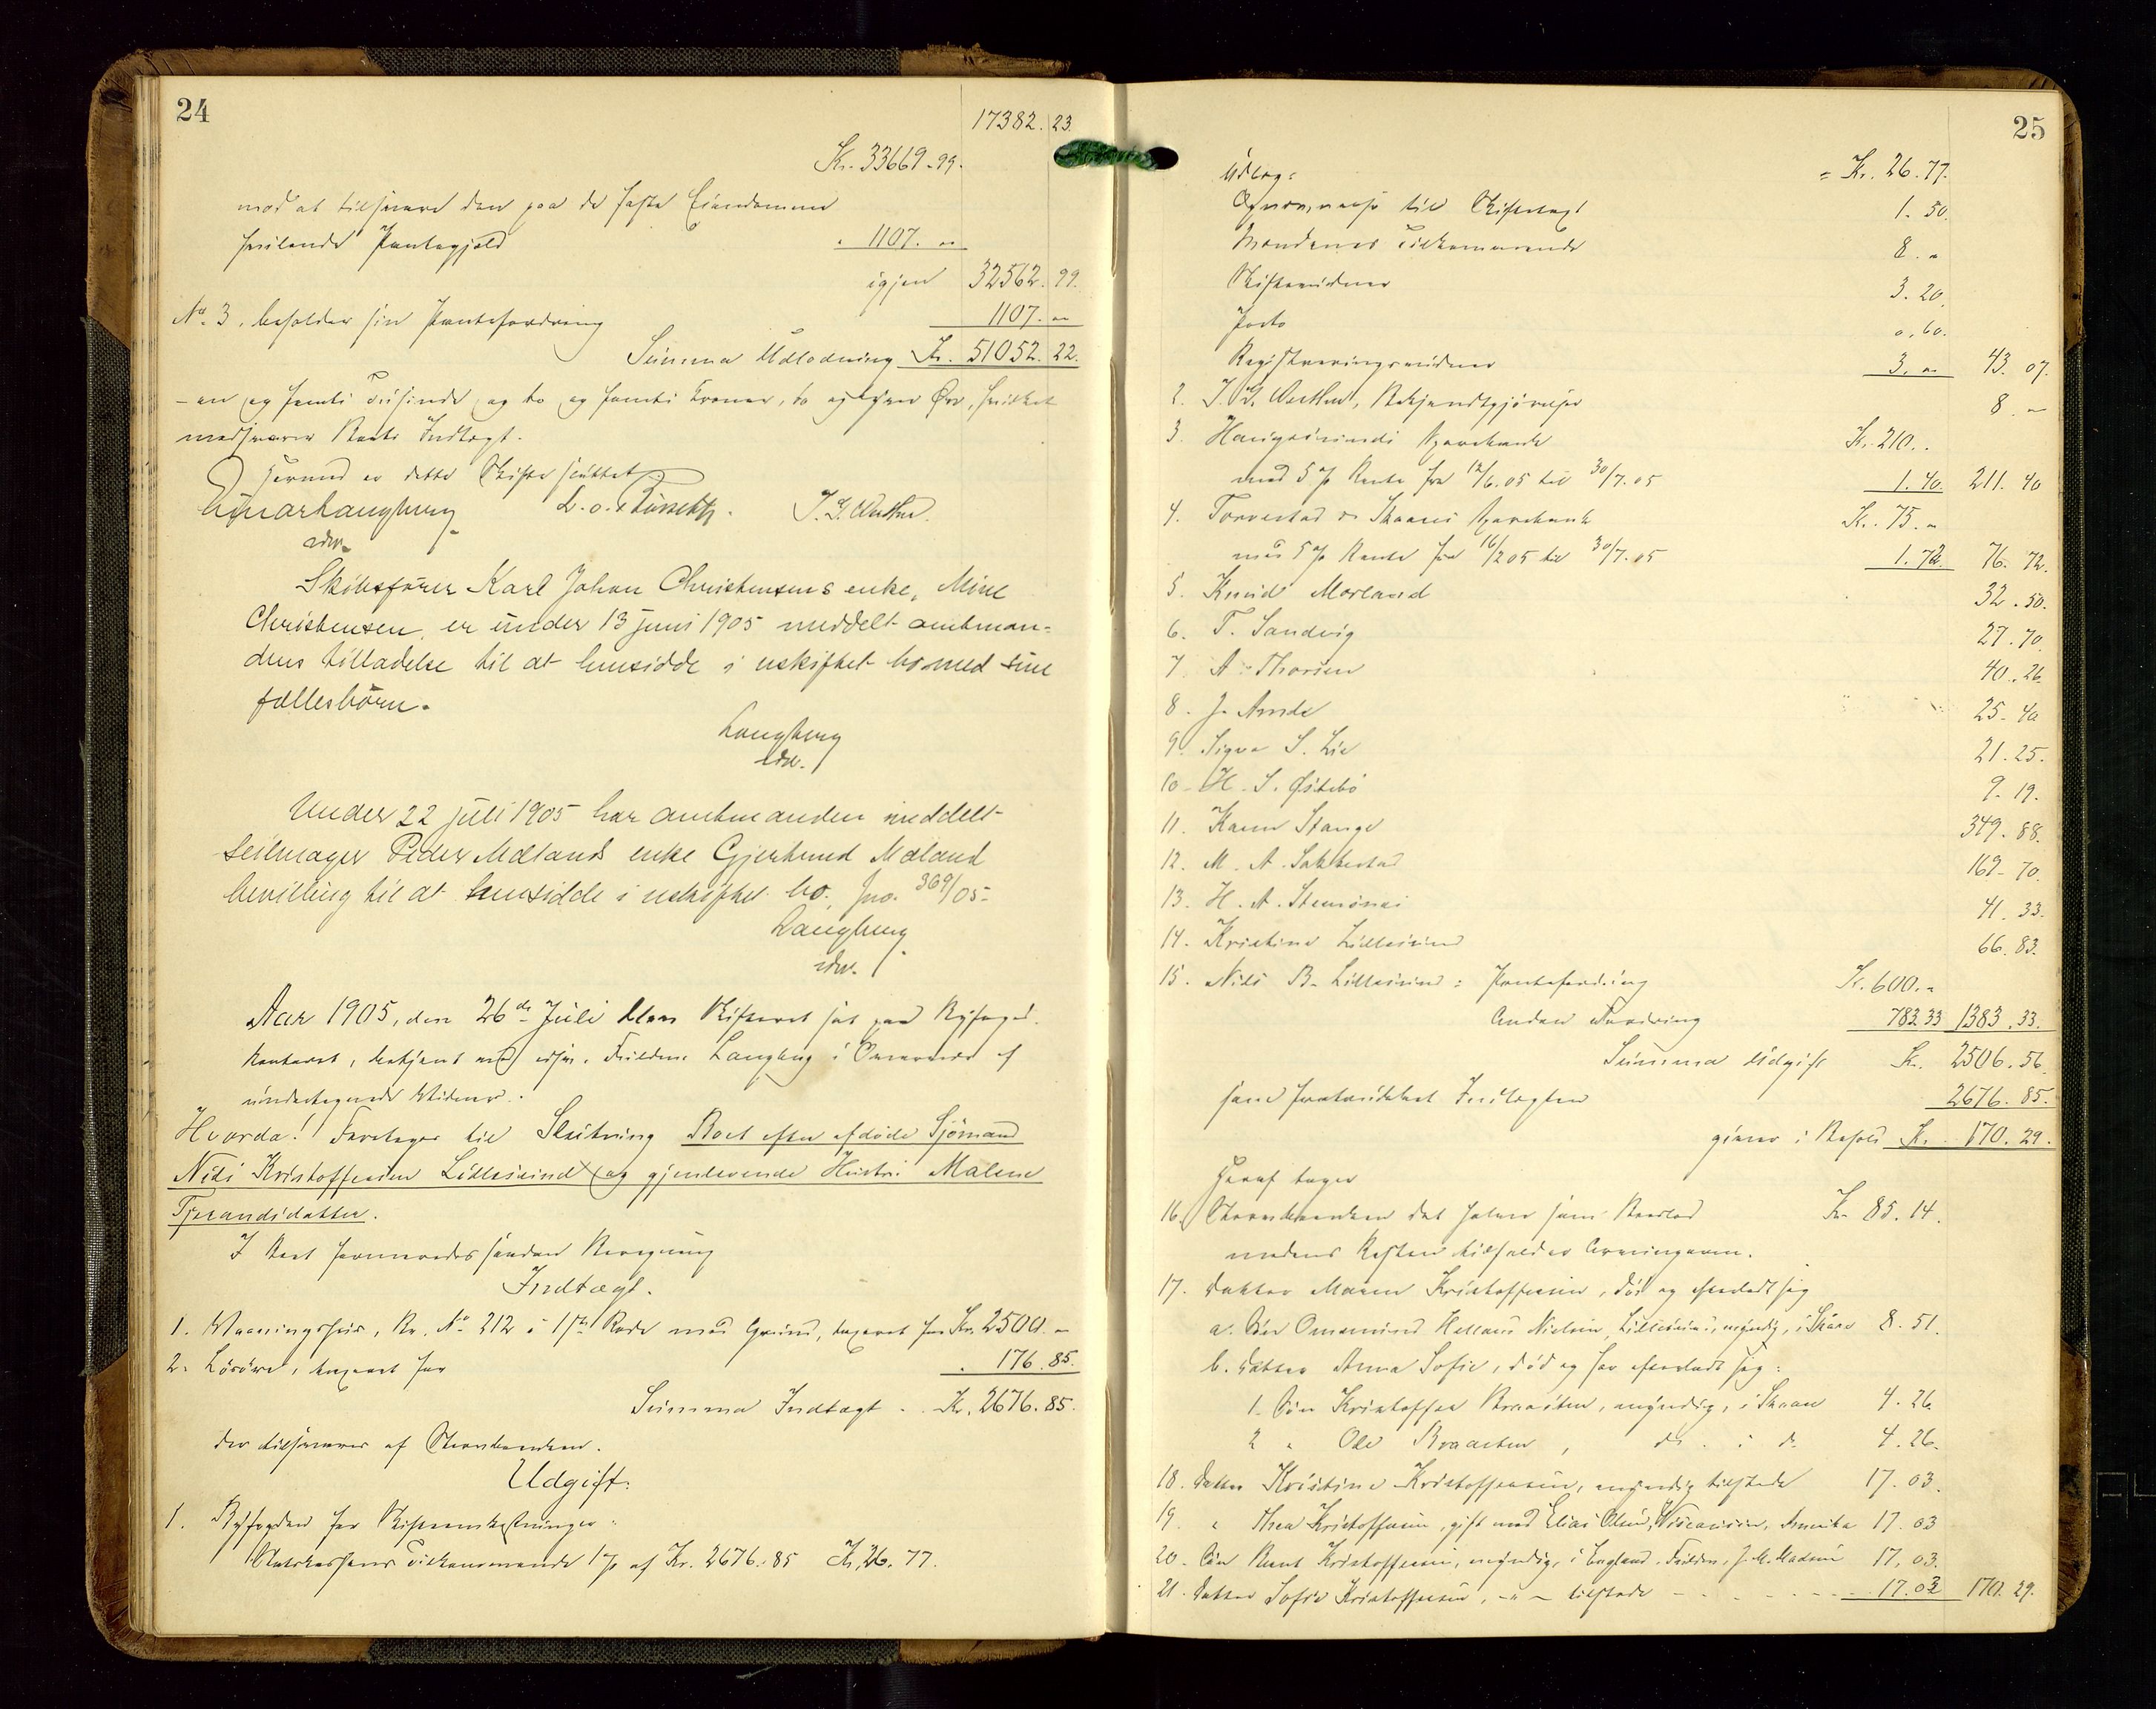 24
17382. 23.
Kr. 33669.99.
mod at tilsvare den paa de faste Eiendomme
heilende Pantegjæld " 1107. "
igjen 32562. 99.
No. 3, beholder sin Pantefordring 1107. "
Summa Udlodning Kr. 51052. 22.
- en og femti Tusinde og to og femti Kroner, to og tyve Øre, hvilket
modsvarer Boets Indtægt.
Hermed er dette Skifte sluttet
J. G. Wathne.
edsv.
Skibsfører Karl Johan Christensens enke, Mine
Christensen, er under 13 juni 1905 meddelt amtman-
dens tilladelse til at hensidde i uskiftet bo med sine
fællesbørn.
Langberg
edsv.
Under 22 juli 1905 har amtmanden meddelt
seilmager Peder Mælands enke Gjertrud Mæland
bevilling til at hensidde i uskiftet bo. Jno. 369/05.
Langberg
edsv.
Aar 1905, den 26de Juli blev Skifteret sat paa Byfoged-
kontoret, betjent ved edsv. Fuldm. Langberg i Overvær af
undertegnede Vidner.
Hvorda! Foretoges til Slutning Boet efter afdøde Sjømand
Nils Kristoffersen Lillesund og gjenlevende Hustru Malene
Tjerandsdatter.
I Boet formeredes saadan Beregning
Indtægt.
1. Vaaningshus, Br. No 212 i 1ste Rode med Grund, taxeret for Kr. 2500. "
2. Løsøre, taxeret for " 176. 85.
Summa Indtægt . . Kr. 2676. 85.
der tilsvares af Stervboenken.
Udgift:
1. Byfogden for Skifteomkostninger:
Statskassens Tilkommende 1% af Kr. 2676.85 Kr. 26. 77.
25
Udlæg: = Kr. 26. 77.
til Skifteseddel 1. 50.
Mændenes Tilkommende 8. "
Skiftevidner 3. 20.
Porto 0. 60.
Registreringsvidner 3. " 43. 07.
2. J. G. Wathne, Bekjendtgjørelse 8. "
3. Haugesunds Sparebank Kr. 210. .
med 5% Rente fra 12/6.05 til 30/7.05 1. 40. 211. 40
4. Torvestad & Skaares Sparebank Kr. 75. "
med 5% Rente fra 16/2 05 til 30/7.05 1. 72. 76. 72.
5. Knud Morland 32. 50.
6. T. Sandvig 27. 70.
7. A. Thorsen 40. 26.
8. J. Amdi 25. 40
9. Signe S. Lie 21. 25.
10. H. S. Østebø 9. 19.
11. Karen Stange 349. 88.
12. M. A. Sakkestad 169. 70.
13. H. A. 41. 33.
14. Kristine Lillesund 66. 83.
15. Nils B. Lillesund: Pantefordring Kr. 600. "
Anden Fordring 783.33 1383. 33.
Summa Udgift Kr. 2506. 56.
som fratrukket Indtægten 2676. 85.
giver i Behold Kr. 170. 29.
Heraf tager
16. Stervboenken det halve som Boeslod Kr. 85. 14.
medens Resten tilfalder Arvingerne.
17. Datter Maren Kristoffersen, død og efterladt sig
a. Søn Ommund Nielsen Lillesund, myndig, i Skaare 8. 51.
b. Datter Anna Sofie, død og har efterladt sig:
1. Søn Kristoffer Braaten, myndig, i Skaare 4. 26.
2 " Ole Braaten, do. i do 4. 26.
18. Datter Kristine Kristoffersen, myndig tilstede 17. 03.
19. " Thea Kristoffersen, gift med Elias Olsen, Wisconsin, Amerika 17. 03
20. Søn Bernt Kristoffersen, myndig, i England. Fuldm. J. M. Madsen 17. 03.
21. Datter Sofie Kristoffersen, - " - tilstede - - - - - 17. 03 170. 29.